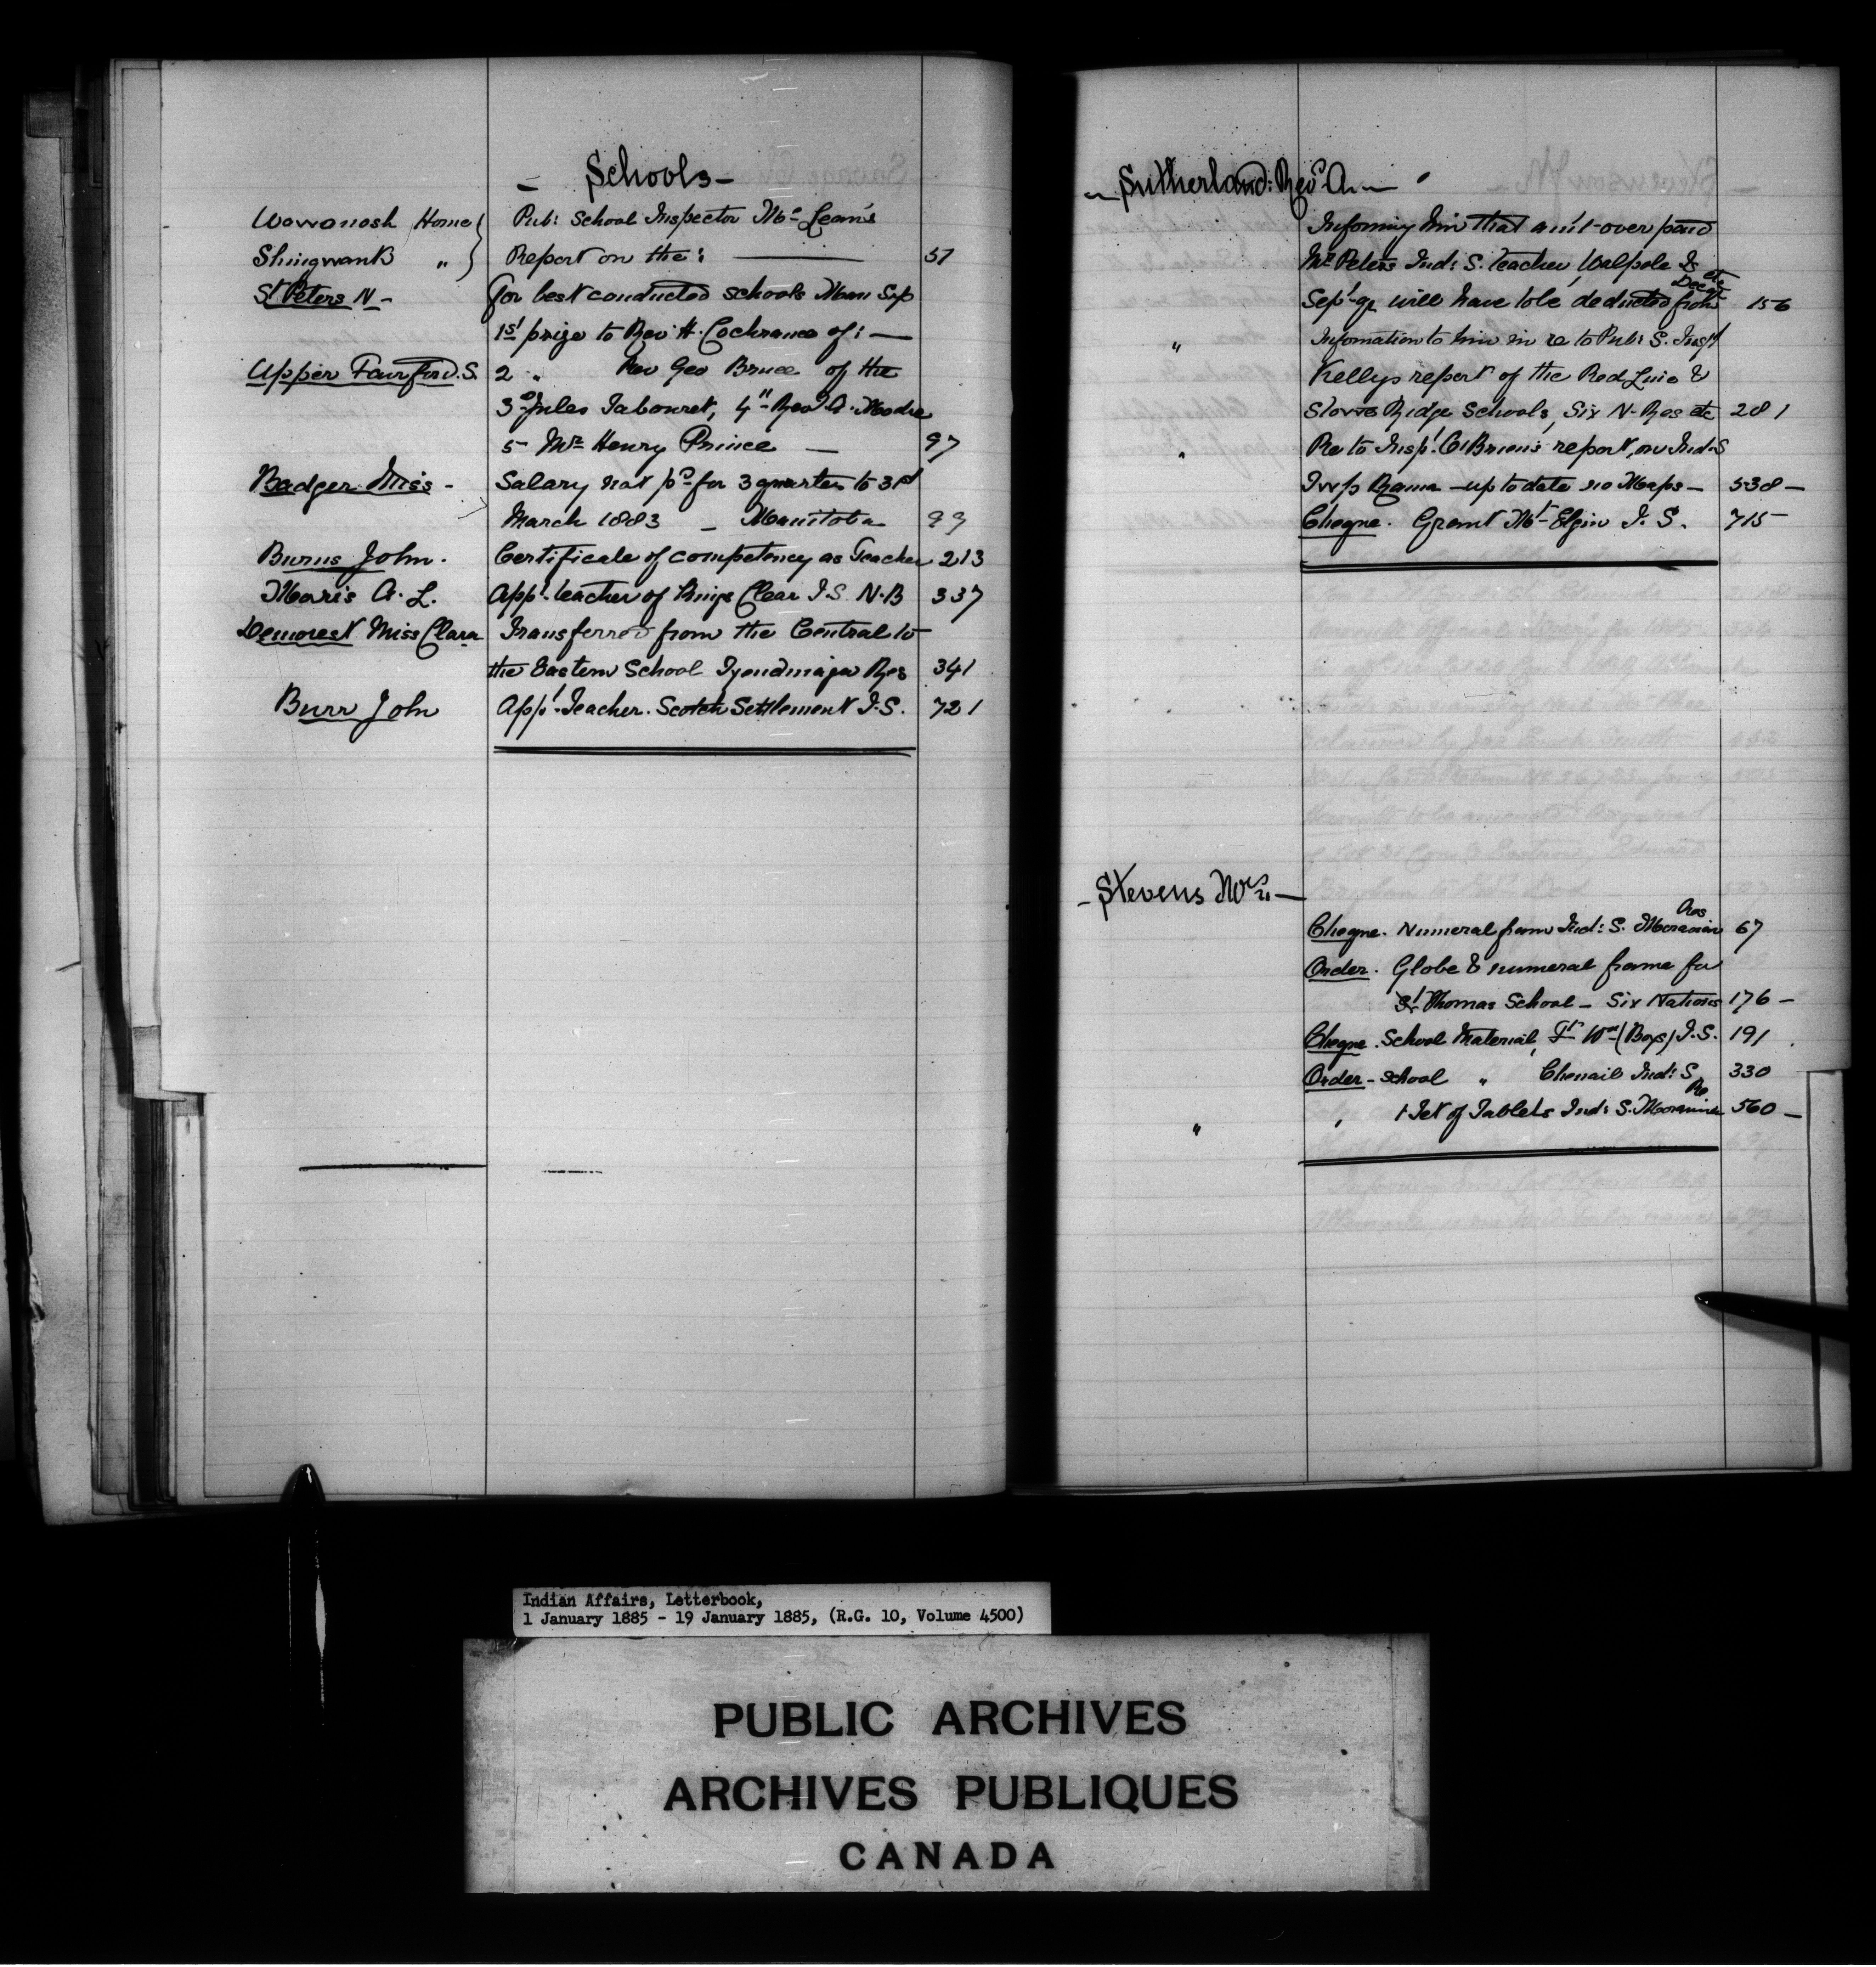 – Schools –
Wawanosh Home } Pub: School Inspector Mc Lean's
Shingwank " } Report on the: 57
St Peters N – for best conducted schools Man Sup
1st prize to Rev H. Cochrane of: —
Upper Fairford. S. 2 " Rev Geo Bruce of the
3d Jules Tabouret, 4" Revd A.
5 – Mr Henry Prince — 97
Badger Miss – Salary not pd for 3 quarters to 31st
March 1883 – Manitoba 99
Burns John. Certificate of competency as Teacher 213
Maris A. L. Appt. teacher of Kings Clear I. S. N. B 337
Demorest Miss Clara Transferred from the Central to
the Eastern School Tyendinaga Res 341
Burr John Appt. Teacher. Scotch Settlement I. S. 721
– Sutherland: Revd A. –
Informing him that am't over paid
Mr Peters Ind: S. teacher, Walpole Is
Sept. qr will have to be deducted from Dec 156
" Information to him in re to Pub: S. Inspt
Kellys report of the Red Line &
Stone Ridge Schools, Six N. Res etc 281
" Re to Inspt. O'Brien's report, on Ind: S
Rama – up to date no Maps – 538 –
Cheque. Grant Mt Elgin I. S. 715
– Stevens Wm –
Cheque. Numeral frame Ind: S. Moravian Res 67
Order. Globe & numeral frame for
St Thomas School – Six Nations 176 –
Cheque. School Material, Ft Wm (Boys) I. S. 191
Order – School " Chenail Ind: S. 330
" , 1 Set of Tablets Ind: S. Moravian Re 560 –
Indian Affairs, Letterbook,
1 January 1885 - 19 January 1885, (R.G. 10, Volume 4500)
PUBLIC ARCHIVES
ARCHIVES PUBLIQUES
CANADA